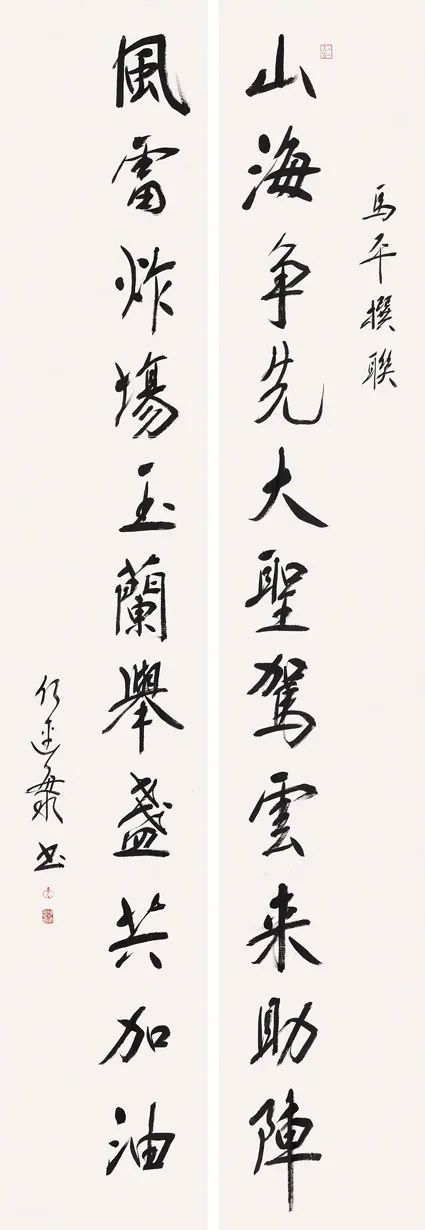 馬平撰聯
山海争先大聖駕雲来助陣
風雷炸場玉蘭舉盞共加油
书